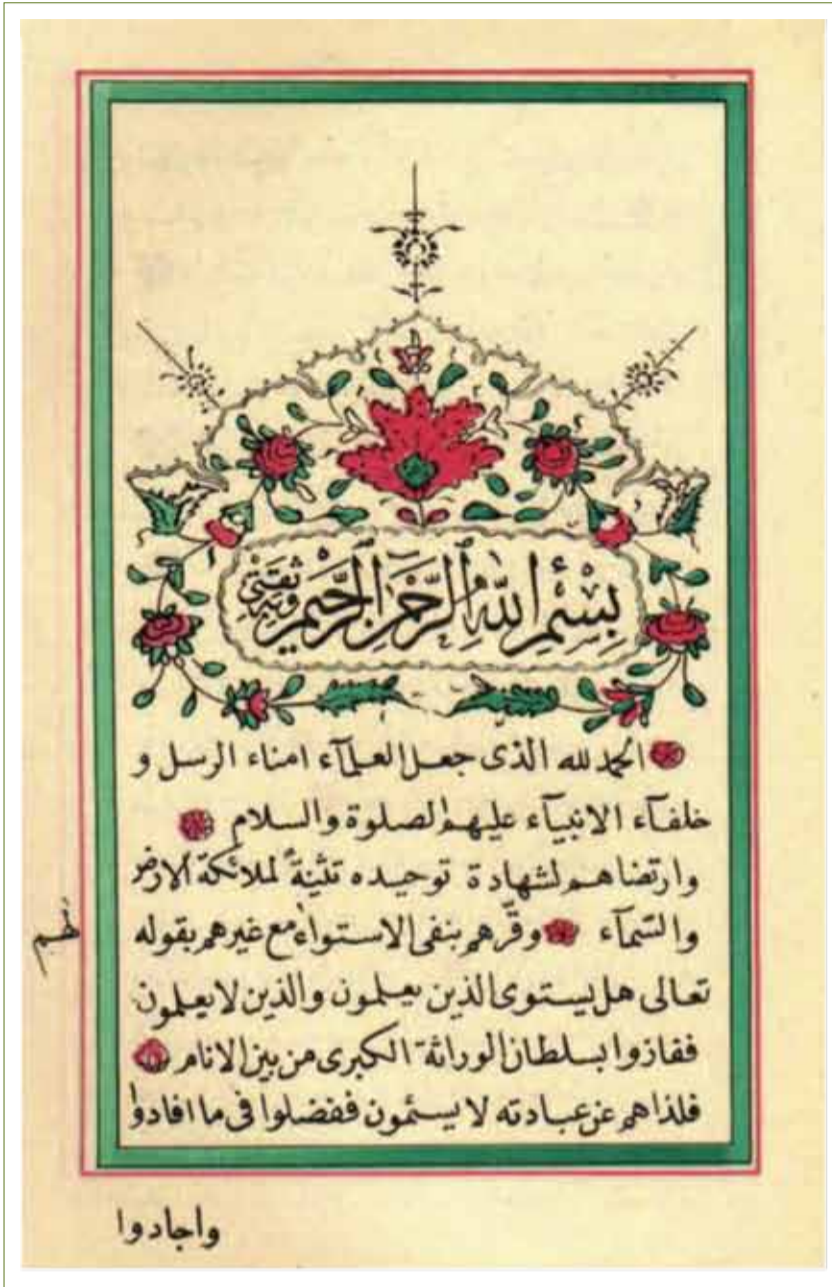 بِسْمِ اللّٰهِ الرَّحْمٰنِ الرَّحِيْمِ وَبِهِ ثِقَتِي
الحمد لله الذى جعل العلمآء امناء الرسل و
خلفآء الانبيآء عليهم الصلوة والسلام
وارتضاهم لشهادة توحيده تثنيةً لملائكة الارض
والسّمآء وقّرهم بنفى الاستواء مع غيرهم بقوله
تعالى هل يستوى الذين يعلمون والذين لا يعلمون
ففازوا بسلطان الوراثة الكبرى من بين الانام
فلذاهم عن عبادته لا يسئمون ففضلوا فى ما افادوا
واجادوا